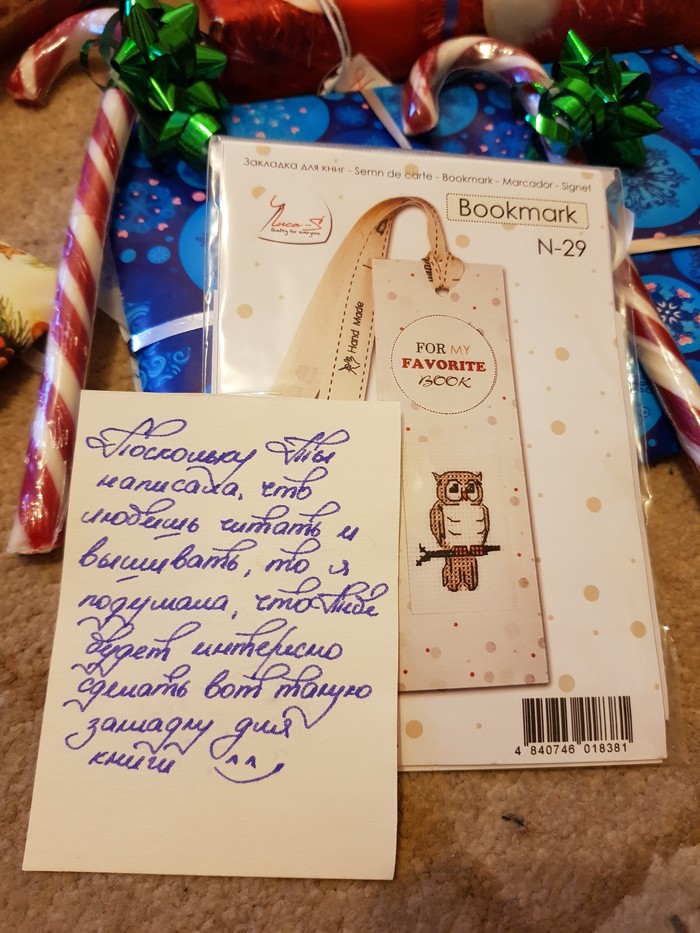 Закладка для книг - Semn de carte - Bookmark - Marcador - Signet
Luca-S
Quality for everyone
Bookmark
N-29
Hand Made
FOR MY
FAVORITE
BOOK
4 840746 018381
Поскольку Ты
написала, что
любишь читать и
вышивать, то я
подумала, что Тебе
будет интересно
сделать вот такую
закладку для
книги ^^